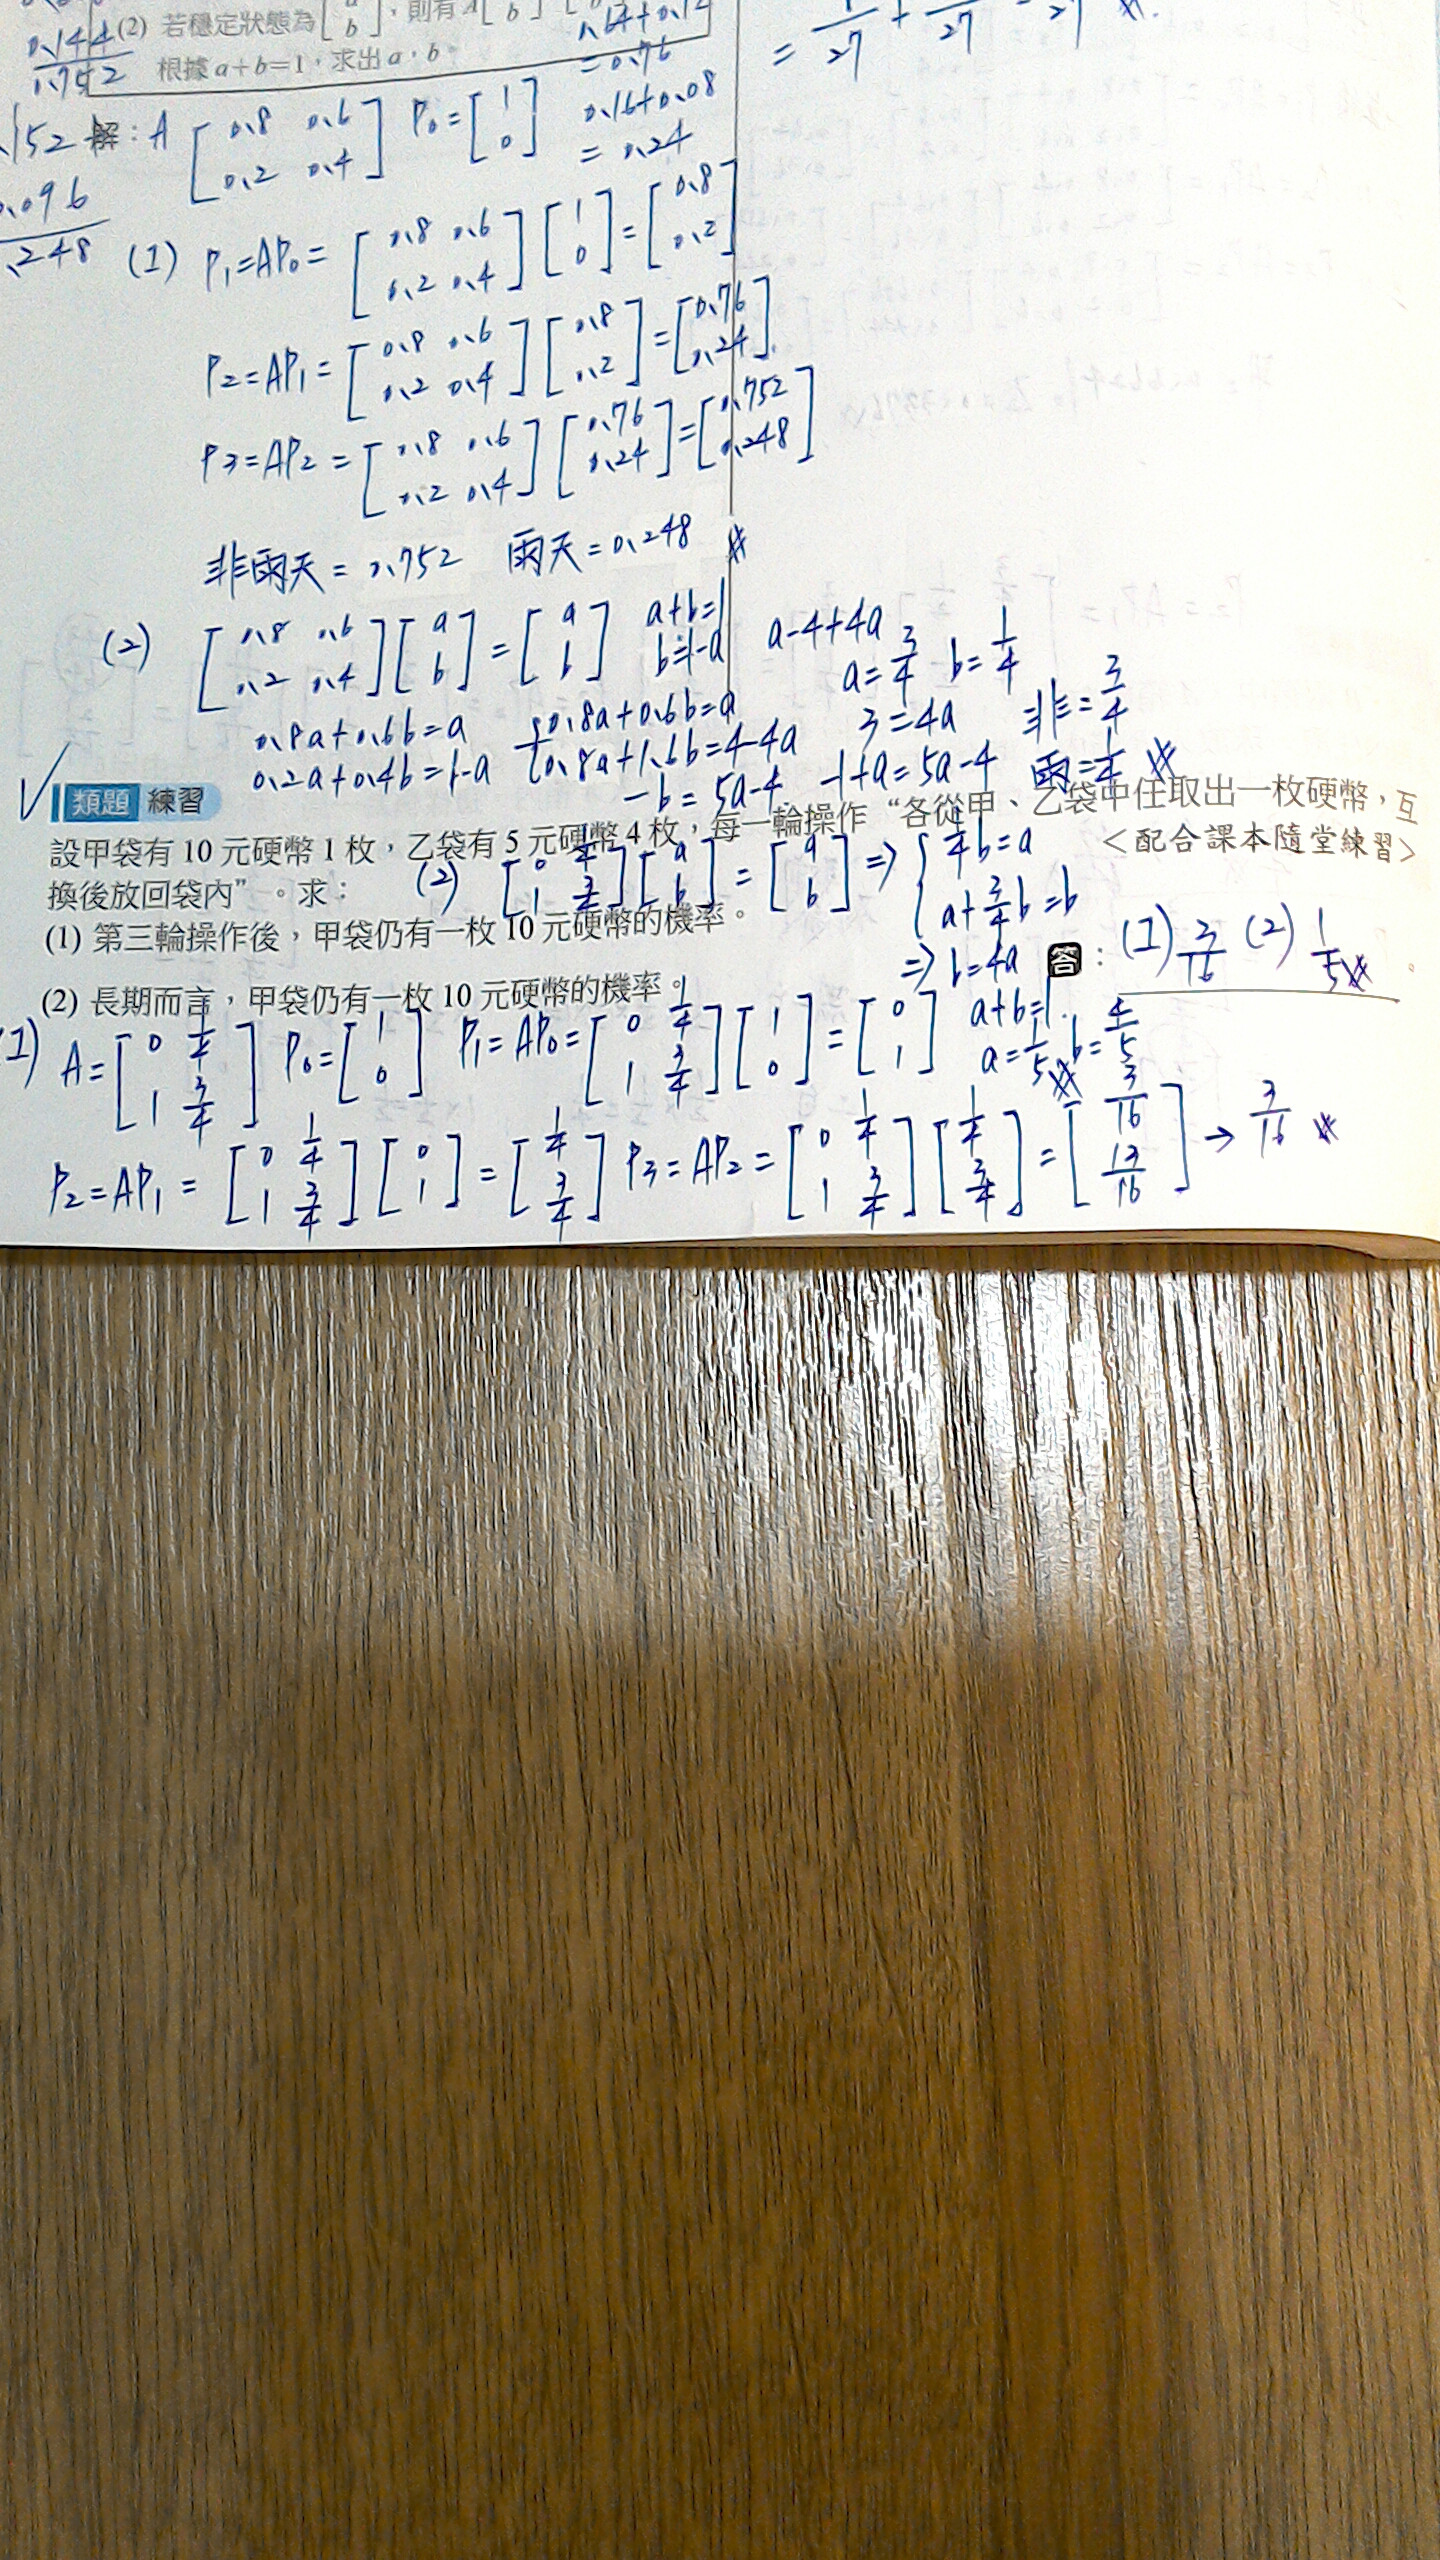 0.144
0.752
(2) 若穩定狀態為[a b],則有A[
根據a+b=1,求出a,b。
0.64+0.12
=0.76
0.16+0.08
=0.24
.152
0.096
.248
解:A [0.8 0.6 0.2 0.4] P₀=[1 0]
(1) P₁=AP₀=[0.8 0.6 0.2 0.4][1 0]=[0.8 0.2]
P₂=AP₁=[0.8 0.6 0.2 0.4][0.8 0.2]=[0.76 0.24]
P₃=AP₂=[0.8 0.6 0.2 0.4][0.76 0.24]=[0.752 0.248]
非雨天=0.752 雨天=0.248
(2) [0.8 0.6 0.2 0.4][a b]=[a b] a+b=1
b=1-a
0.8a+0.6b=a
0.2a+0.4b=1-a
0.8a+0.6b=a
0.8a+1.6b=4-4a
-b=5a-4
-1+a=5a-4
3=4a
a-4+4a
a=3/4 b=1/4
非=3/4
雨=1/4
類題 練習
設甲袋有 10 元硬幣 1 枚,乙袋有 5 元硬幣 4 枚,每一輪操作“各從甲、乙袋中任取出一枚硬幣,互
換後放回袋內”。求:
<配合課本隨堂練習>
(1) 第三輪操作後,甲袋仍有一枚 10 元硬幣的機率。
(2) 長期而言,甲袋仍有一枚 10 元硬幣的機率。
答:(1) 3/16 (2) 1/5
(2) [0 1/4 1 3/4][a b]=[a b]⇒{1/4b=a
a+3/4b=b
⇒b=4a
a+b=1
a=1/5 b=4/5
(1) A=[0 1/4 1 3/4] P₀=[1 0] P₁=AP₀=[0 1/4 1 3/4][1 0]=[0 1]
P₂=AP₁=[0 1/4 1 3/4][0 1]=[1/4 3/4] P₃=AP₂=[0 1/4 1 3/4][1/4 3/4]=[3/16 13/16]→3/16